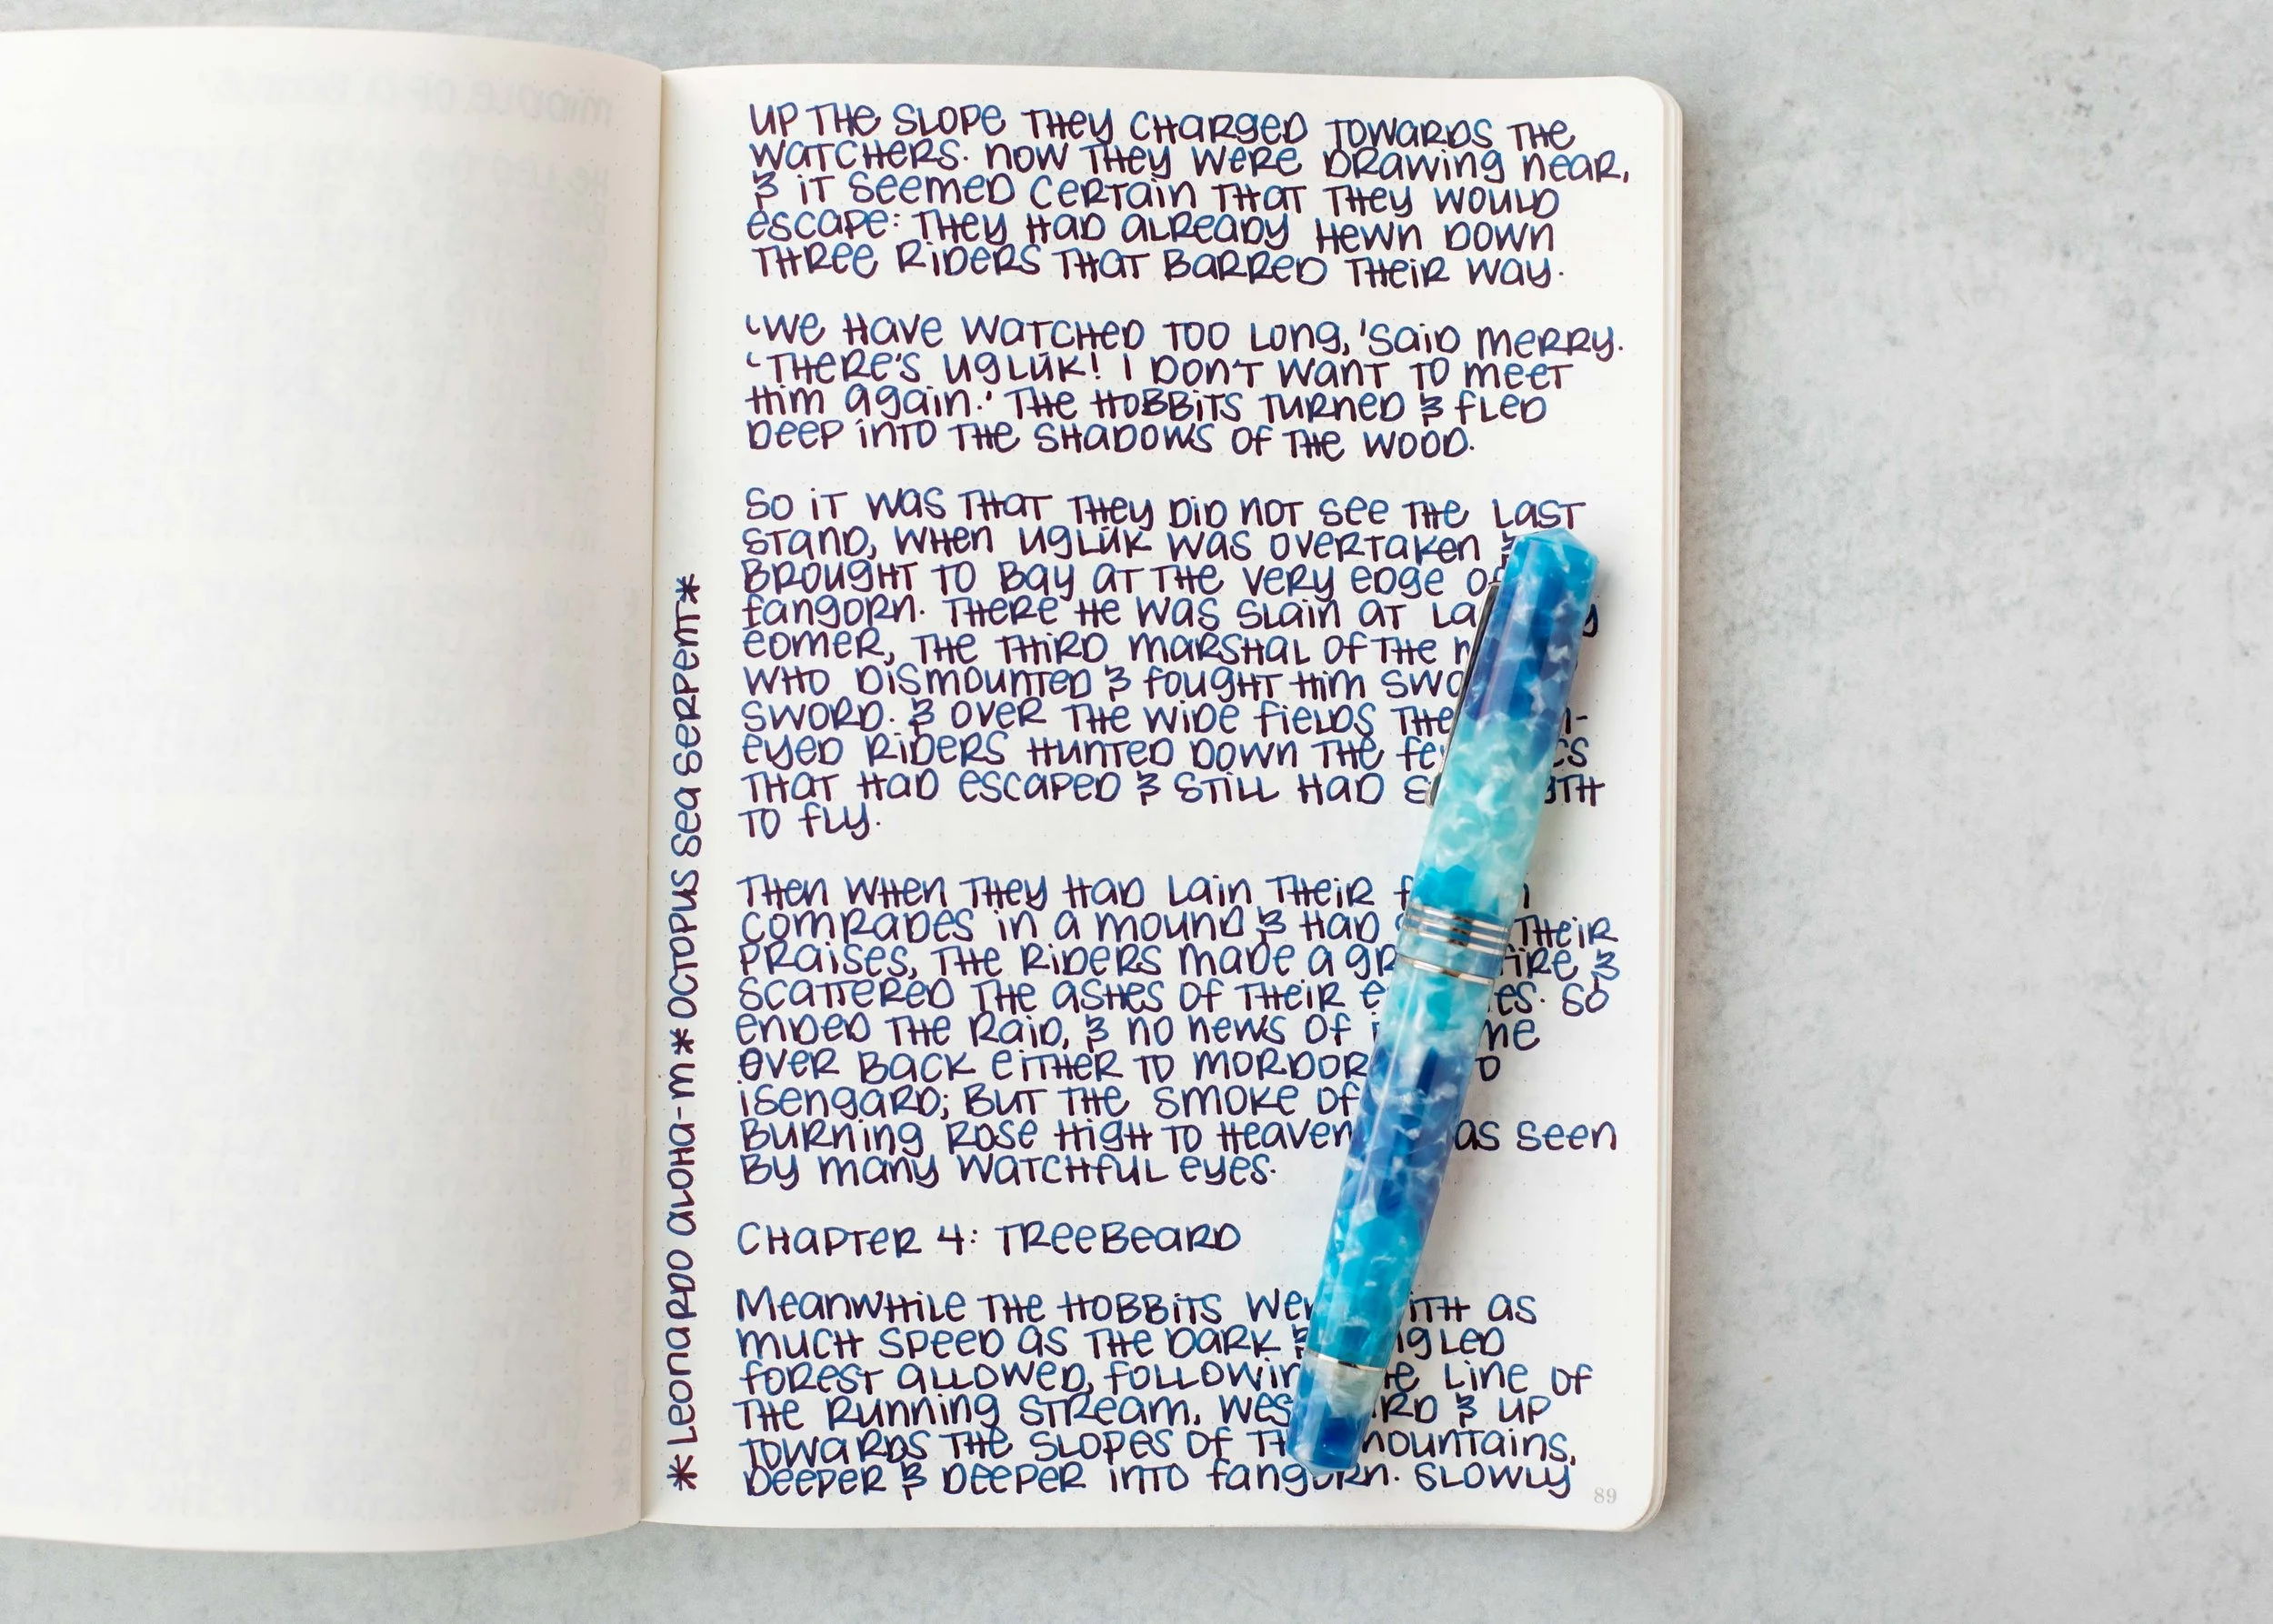 UP THE SLOPE THEY CHARGED TOWARDS THE
WATCHERS. NOW THEY WERE DRAWING NEAR,
& IT SEEMED CERTAIN THAT THEY WOULD
ESCAPE: THEY HAD ALREADY HEWN DOWN
THREE RIDERS THAT BARRED THEIR WAY.
'WE HAVE WATCHED TOO LONG,' SAID MERRY.
'THERE'S UGLÚK! I DON'T WANT TO MEET
HIM AGAIN.' THE HOBBITS TURNED & FLED
DEEP INTO THE SHADOWS OF THE WOOD.
SO IT WAS THAT THEY DID NOT SEE THE LAST
STAND, WHEN UGLÚK WAS OVERTAKEN &
BROUGHT TO BAY AT THE VERY EDGE OF
FANGORN. THERE HE WAS SLAIN AT
EOMER, THE THIRD MARSHAL OF THE
WHO DISMOUNTED & FOUGHT HIM
SWORD. & OVER THE WIDE FIELDS THE
EYED RIDERS HUNTED DOWN THE
THAT HAD ESCAPED & STILL HAD
TO FLY.
THEN WHEN THEY HAD LAIN THEIR
COMRADES IN A MOUND & HAD THEIR
PRAISES, THE RIDERS MADE A FIRE &
SCATTERED THE ASHES OF THEIR SO
ENDED THE RAID, & NO NEWS OF
OVER BACK EITHER TO MORDOR
ISENGARD; BUT THE SMOKE OF
BURNING ROSE HIGH TO HEAVEN SEEN
BY MANY WATCHFUL EYES.
CHAPTER 4: TREEBEARD
MEANWHILE THE HOBBITS AS
MUCH SPEED AS THE DARK &
FOREST ALLOWED, LINE OF
THE RUNNING STREAM, & UP
TOWARDS THE SLOPES OF MOUNTAINS,
DEEPER & DEEPER INTO FANGORN. SLOWLY
89
*LEONARDO ALOHA-M*OCTOPUS SEA SERPENT*